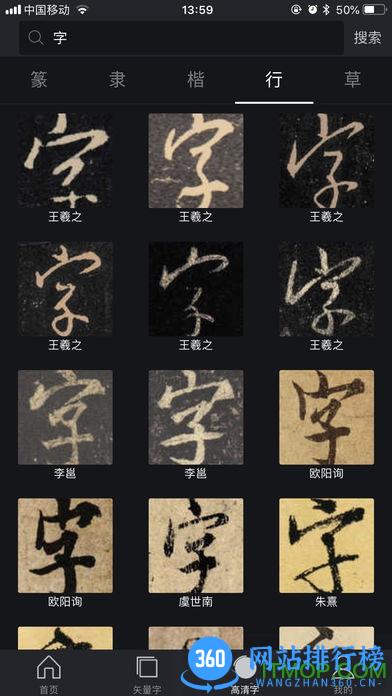 中国移动 13:59 50%
字 搜索
篆 隶 楷 行 草
字 字 字
王羲之 王羲之 王羲之
字 字 字
王羲之 王羲之 王羲之
字 字 字
李邕 李邕 欧阳询
字 字 字
欧阳询 虞世南 朱熹
360 网站排行榜
WANGZHAN360.COM
首页 矢量字 高清字 我的